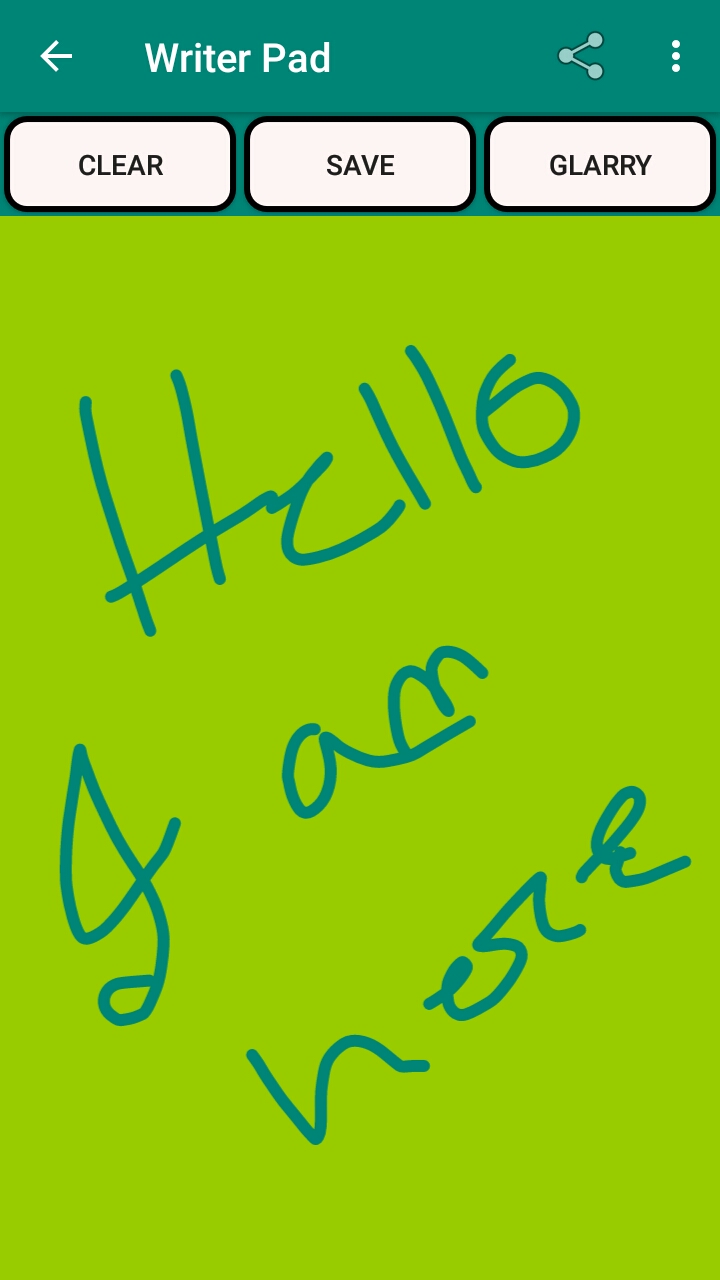 Writer Pad
CLEAR SAVE GLARRY
Hello
I am
here